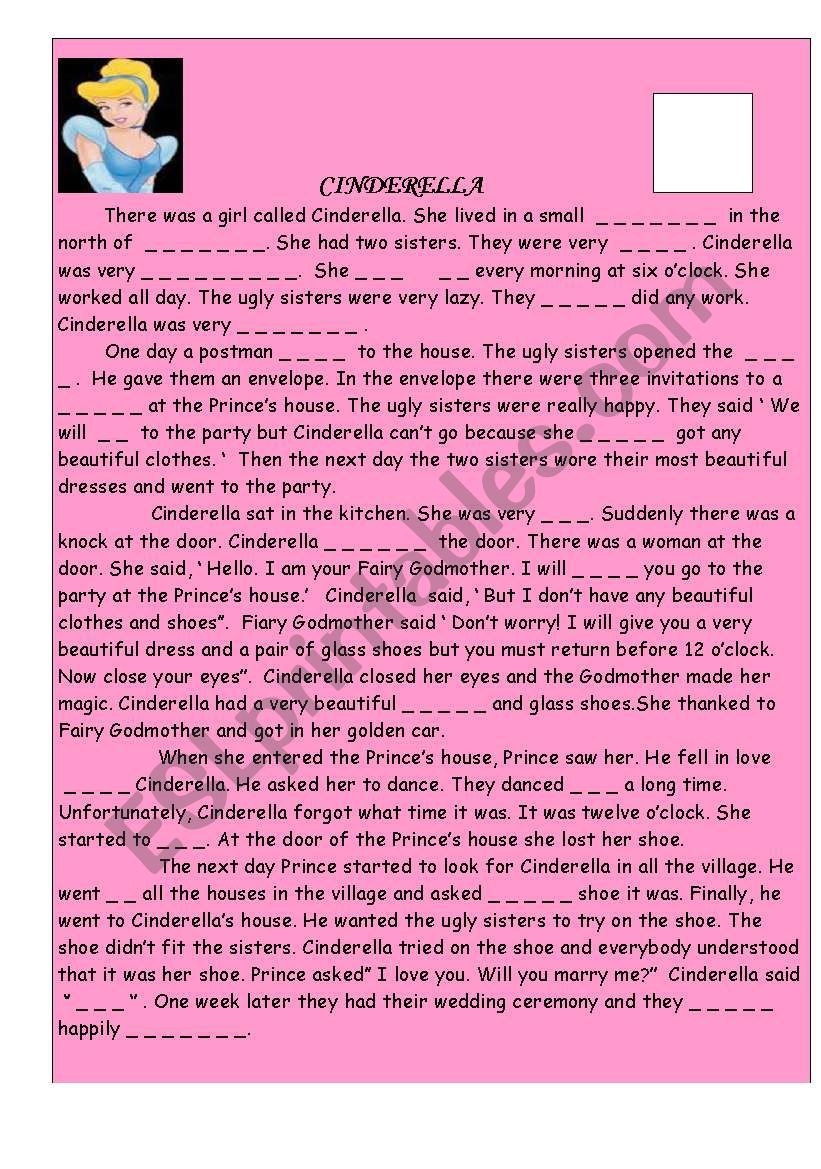 CINDERELLA
There was a girl called Cinderella. She lived in a small _ _ _ _ _ _ _ in the
north of _ _ _ _ _ _ _. She had two sisters. They were very _ _ _ _ . Cinderella
was very _ _ _ _ _ _ _ _ _. She _ _ _ _ _ every morning at six o’clock. She
worked all day. The ugly sisters were very lazy. They _ _ _ _ _ did any work.
Cinderella was very _ _ _ _ _ _ _ .
One day a postman _ _ _ _ to the house. The ugly sisters opened the _ _ _
_ . He gave them an envelope. In the envelope there were three invitations to a
_ _ _ _ _ at the Prince’s house. The ugly sisters were really happy. They said ‘ We
will _ _ to the party but Cinderella can’t go because she _ _ _ _ _ got any
beautiful clothes. ‘ Then the next day the two sisters wore their most beautiful
dresses and went to the party.
Cinderella sat in the kitchen. She was very _ _ _. Suddenly there was a
knock at the door. Cinderella _ _ _ _ _ _ the door. There was a woman at the
door. She said, ‘ Hello. I am your Fairy Godmother. I will _ _ _ _ you go to the
party at the Prince’s house.’ Cinderella said, ‘ But I don’t have any beautiful
clothes and shoes”. Fiary Godmother said ‘ Don’t worry! I will give you a very
beautiful dress and a pair of glass shoes but you must return before 12 o’clock.
Now close your eyes”. Cinderella closed her eyes and the Godmother made her
magic. Cinderella had a very beautiful _ _ _ _ _ and glass shoes.She thanked to
Fairy Godmother and got in her golden car.
When she entered the Prince’s house, Prince saw her. He fell in love
_ _ _ _ Cinderella. He asked her to dance. They danced _ _ _ a long time.
Unfortunately, Cinderella forgot what time it was. It was twelve o’clock. She
started to _ _ _. At the door of the Prince’s house she lost her shoe.
The next day Prince started to look for Cinderella in all the village. He
went _ _ all the houses in the village and asked _ _ _ _ _ shoe it was. Finally, he
went to Cinderella’s house. He wanted the ugly sisters to try on the shoe. The
shoe didn’t fit the sisters. Cinderella tried on the shoe and everybody understood
that it was her shoe. Prince asked” I love you. Will you marry me?” Cinderella said
“ _ _ _ “ . One week later they had their wedding ceremony and they _ _ _ _ _
happily _ _ _ _ _ _ _.
ESLprintables.com